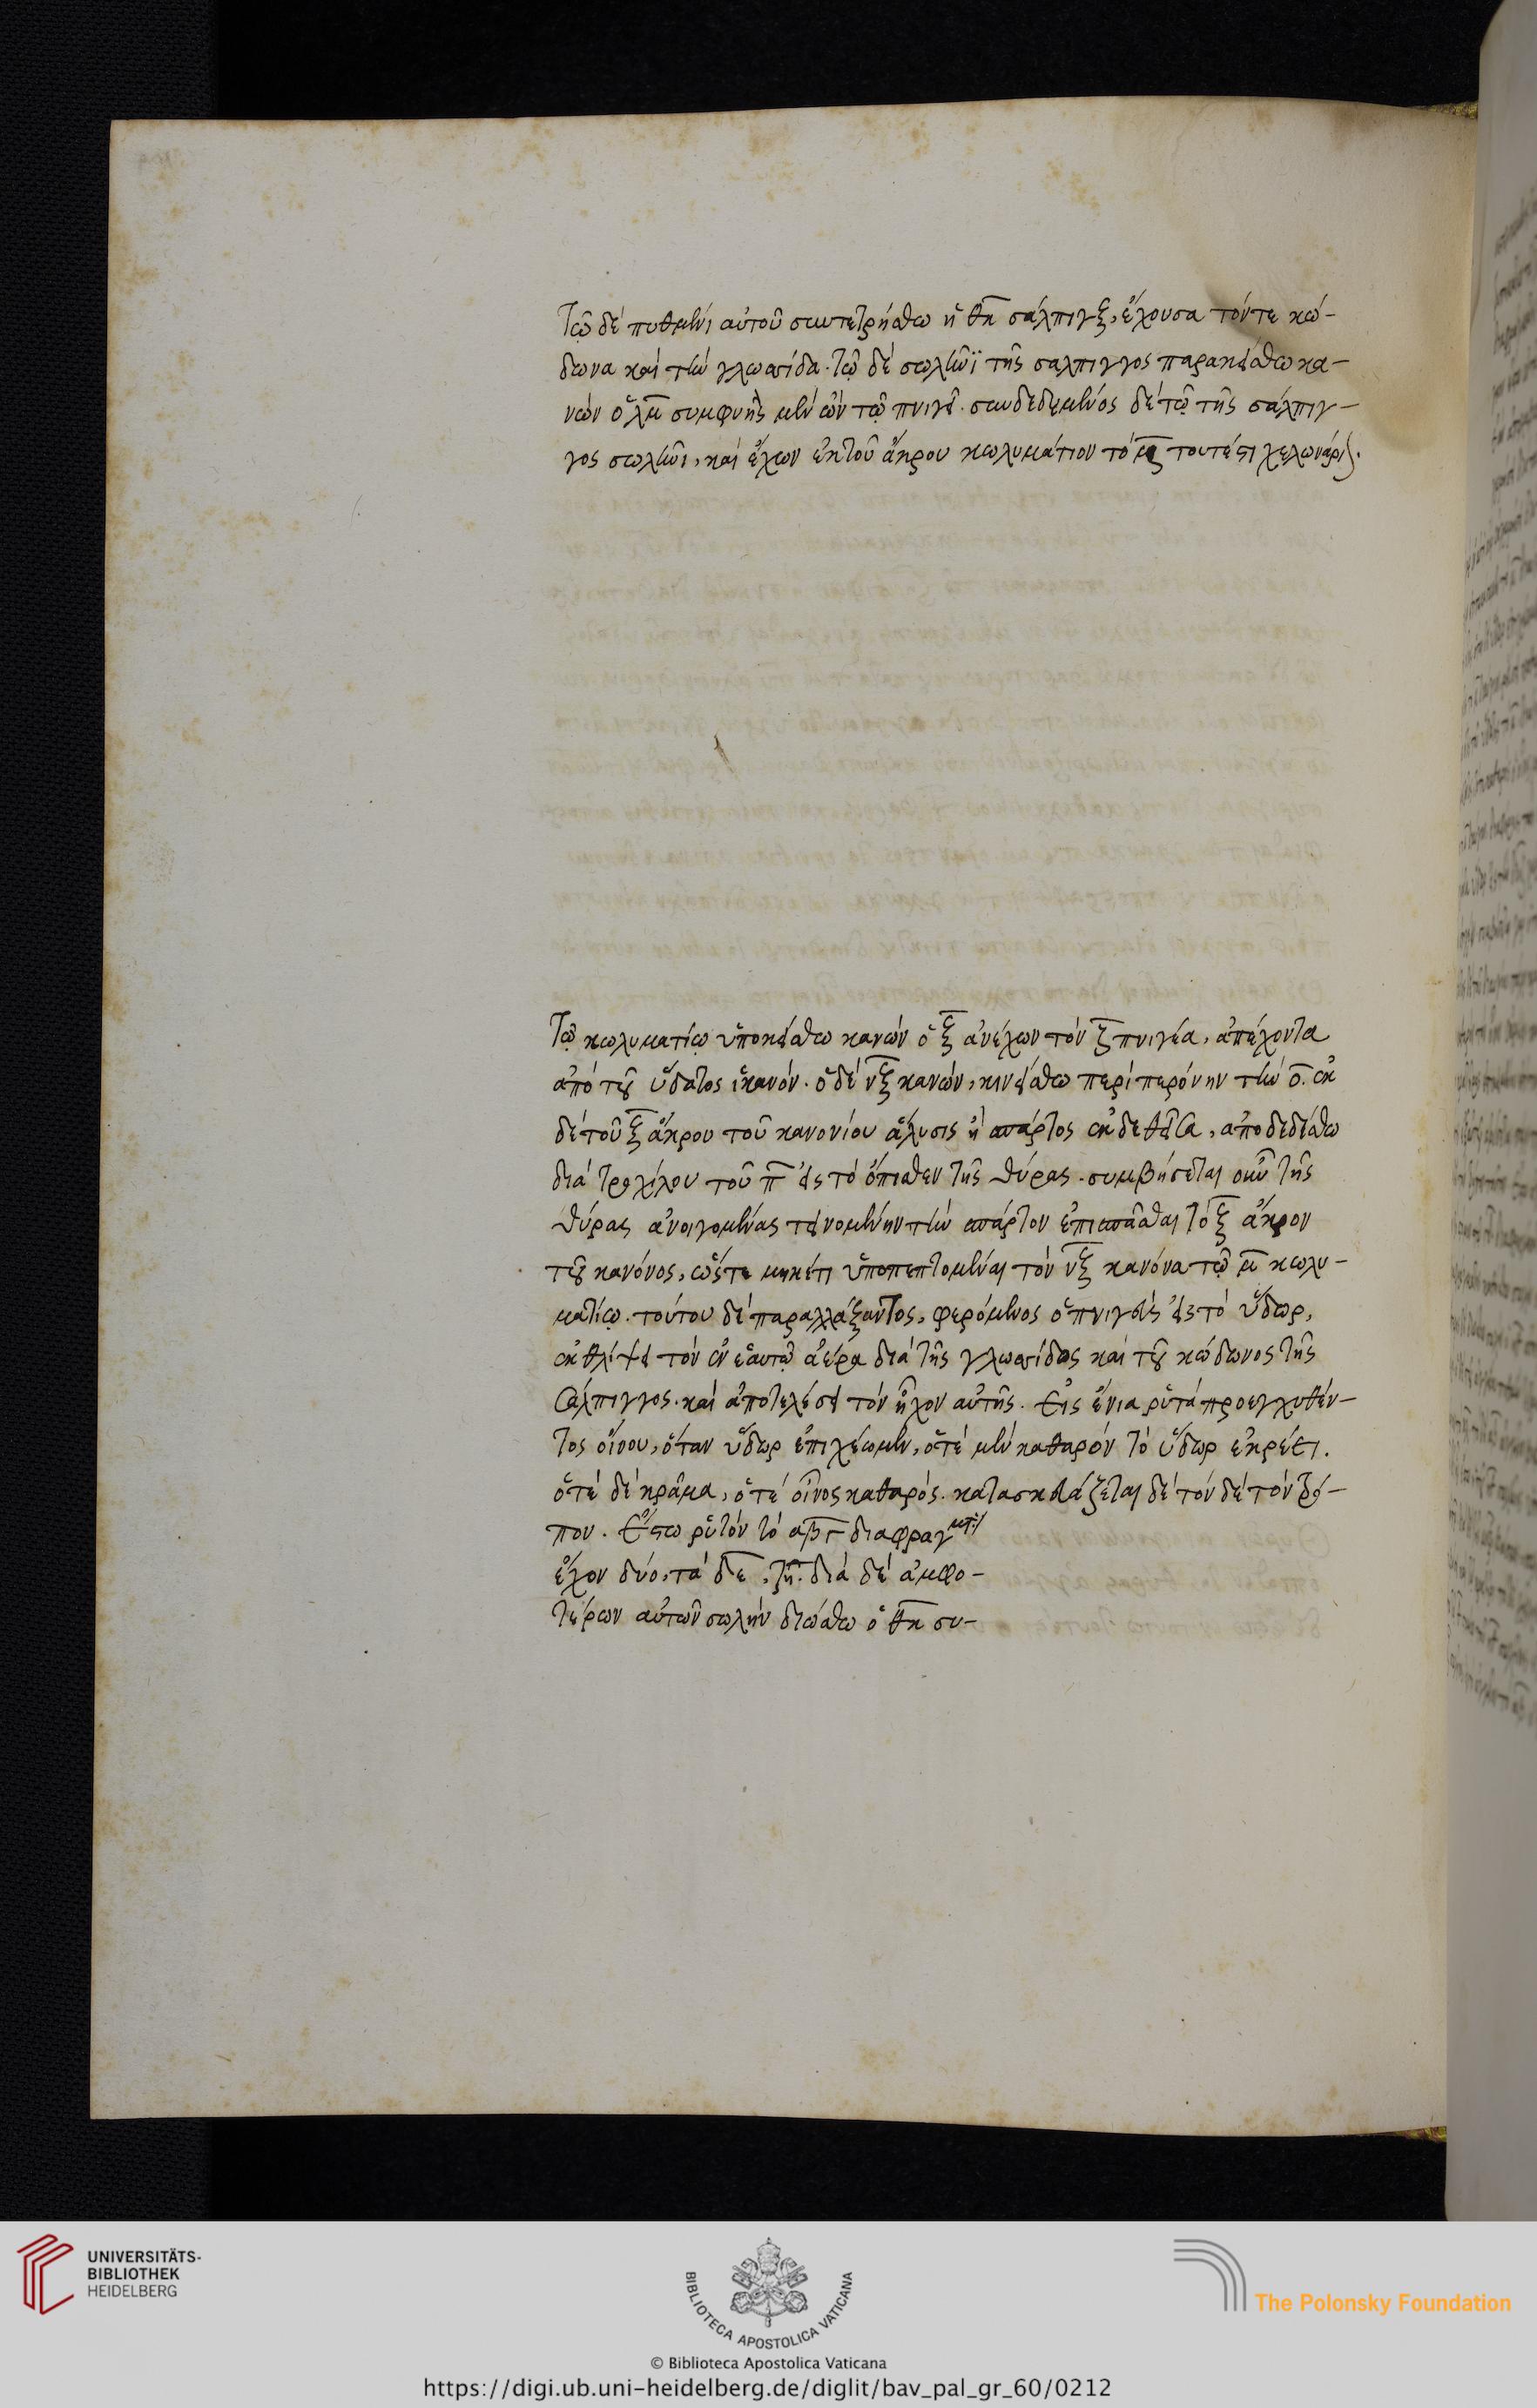 τῷ δὲ πυθμένι αὐτοῦ συντετρήσθω ἡ θκ σάλπιγξ, ἔχουσα τόν τε κώ-
δωνα καὶ τὴν γλωσσίδα. τῷ δὲ σωλῆνϊ τῆς σαλπιγγος παρακείσθω κα-
νὼν ὁ λμ συμφυὴς μὲν ὢν τῷ πνιγεῖ. συνδεδεμένος δὲ τῷ τῆς σάλπιγ-
γος σωλῆνι, καὶ ἔχων ἐκ τοῦ ἄκρου κωλυμάτιον τὸ τουτέστι χελωνάριον.
Τῷ κωλυματίῳ ὑποκείσθω κανὼν ὁ ξ ἀνέχων τὸν ζ πνιγέα, ἀπέχοντα
ἀπὸ τοῦ ὕδατος ἱκανόν. ὁ δὲ νξ κανών, κινείσθω περὶ περόνην τὴν ο. ἐκ
δὲ τοῦ ξ ἄκρου τοῦ κανονίου ἅλυσις ἢ σπάρτος ἐκδεθεῖσα, ἀποδεδέσθω
διὰ τροχίλου τοῦ π εἰς τὸ ὄπισθεν τῆς θύρας. συμβήσεται οὖν τῆς
θύρας ἀνοιγομένας τεινομένην τὴν σπάρτον ἐπισπᾶσθαι τὸ ξ ἄκρον
τοῦ κανόνος, ὥστε μηκέτι ὑποπεπτομέναι τὸν νξ κανόνα τῷ μ κωλυ-
ματίῳ. τούτου δὲ παραλλάξαντος, φερόμενος ὁ πνιγεὺς εἰς τὸ ὕδωρ,
ἐκθλίψει τὸν ἐν ἑαυτῷ ἀέρα διὰ τῆς γλωσσίδος καὶ τοῦ κώδωνος τῆς
σάλπιγγος. καὶ ἀποτελέσει τὸν ἦχον αὐτῆς. Εἰς ἔνια ῥυτὰ προεγχυθέν-
τος οἴνου, ὅταν ὕδωρ ἐπιχέωμεν, ὁτὲ μὲν καθαρὸν τὸ ὕδωρ ἐκρέει.
ὁτὲ δὲ κρᾶμα, ὁτὲ οἶνος καθαρός. κατασκευάζεται δὲ τὸν δὲ τὸν τρό-
πον. Ἔστω ῥυτὸν τὸ αβγ διαφράγματα
ἔχον δύο, τὰ δε, ζη. διὰ δὲ ἀμφο-
τέρων αὐτῶν σωλὴν διώσθω ὁ θκ συ-
UNIVERSITÄTS-
BIBLIOTHEK
HEIDELBERG
BIBLIOTECA APOSTOLICA VATICANA
The Polonsky Foundation
© Biblioteca Apostolica Vaticana
https://digi.ub.uni-heidelberg.de/diglit/bav_pal_gr_60/0212